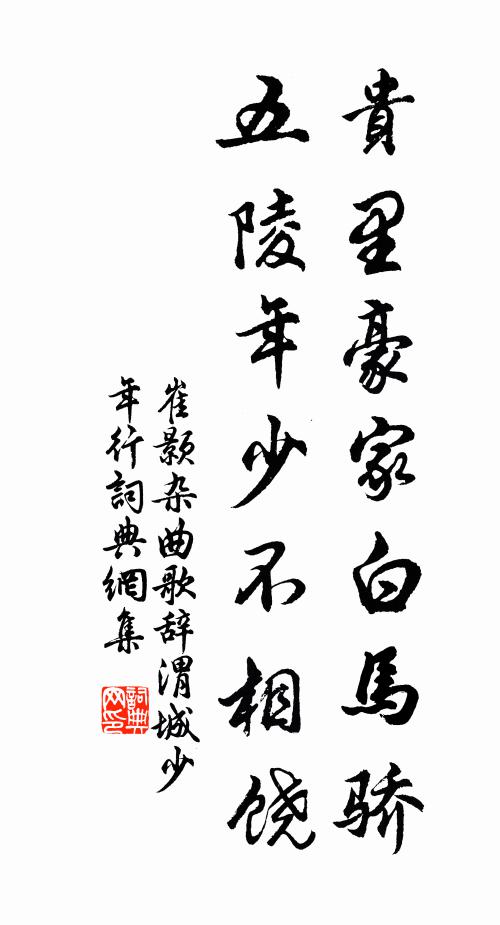 貴里豪家白馬骄
五陵年少不相饶
崔颢杂曲歌辞渭城少
年行詞典網集
詞典
网印